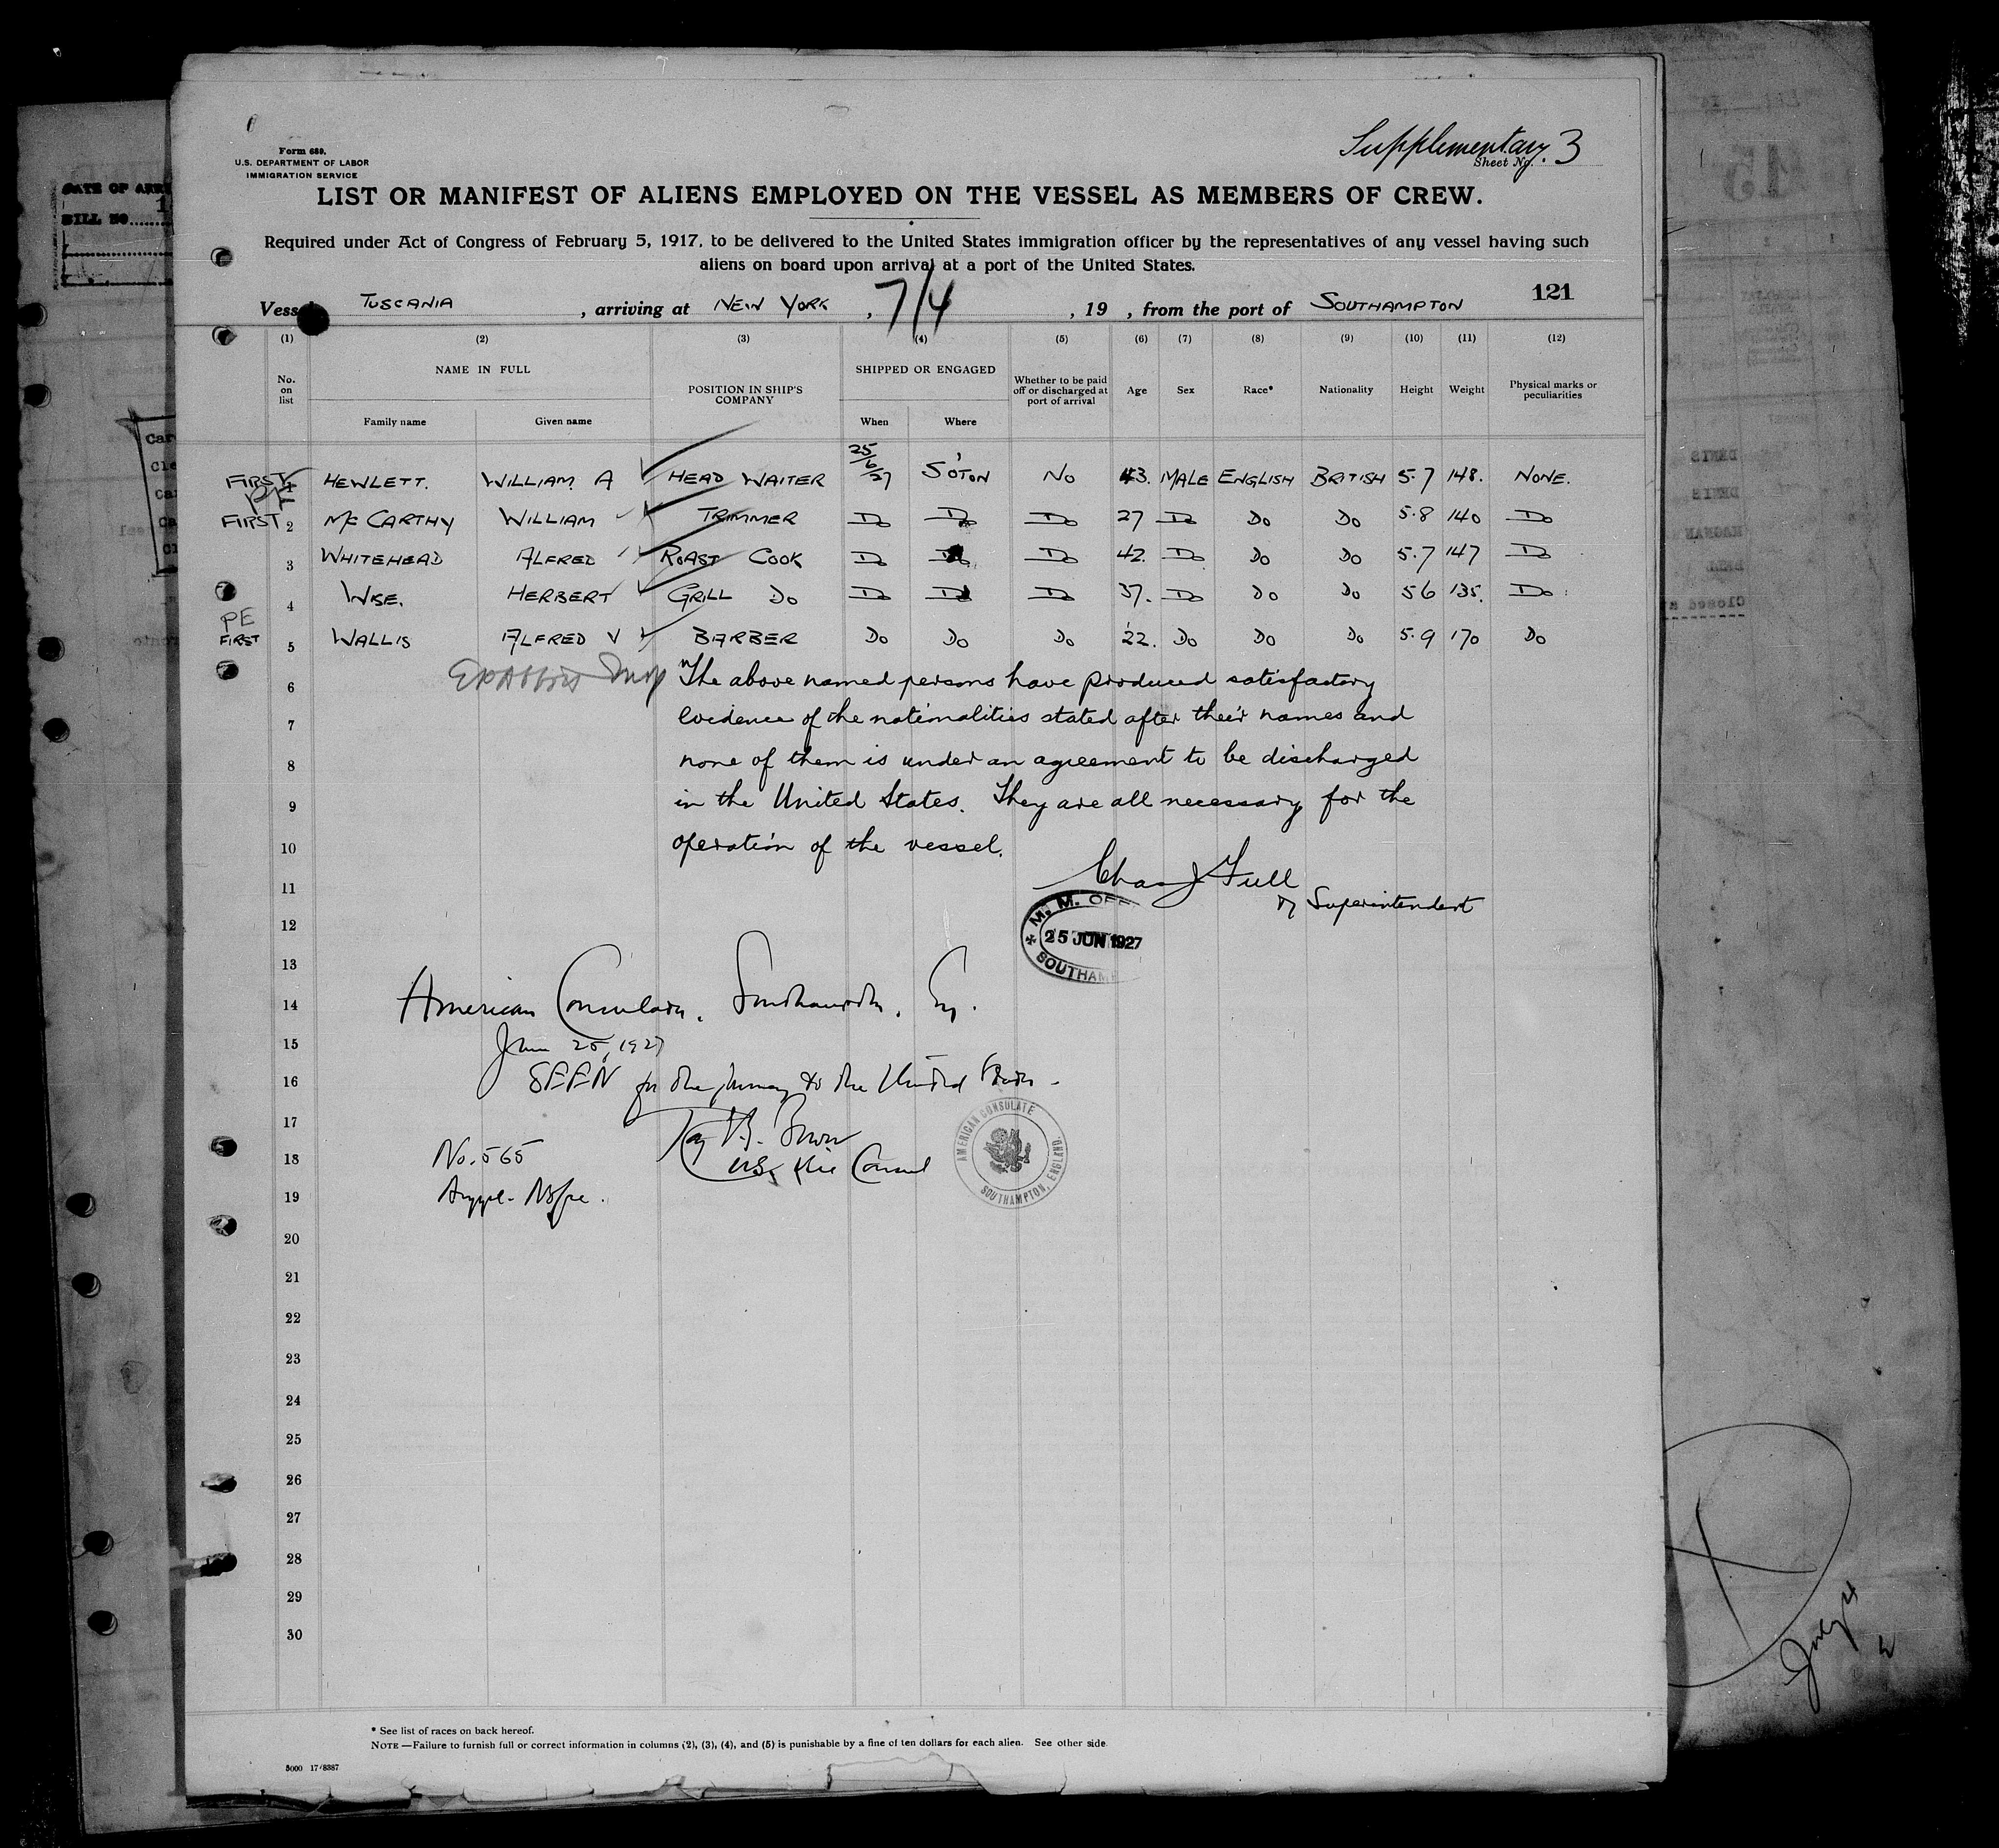 Supplementary. 3
Form 689.
U.S. DEPARTMENT OF LABOR
IMMIGRATION SERVICE
Sheet No.
LIST OR MANIFEST OF ALIENS EMPLOYED ON THE VESSEL AS MEMBERS OF CREW.
Required under Act of Congress of February 5, 1917, to be delivered to the United States immigration officer by the representatives of any vessel having such
aliens on board upon arrival at a port of the United States.
Vess TUSCANIA , arriving at NEW YORK , 7/4 , 19 , from the port of SOUTHAMPTON 121
(1) (2) (3) (4) (5) (6) (7) (8) (9) (10) (11) (12)
No. on list NAME IN FULL Family name Given name POSITION IN SHIP'S COMPANY SHIPPED OR ENGAGED When Where Whether to be paid off or discharged at port of arrival Age Sex Race* Nationality Height Weight Physical marks or peculiarities
FIRST 1 HEWLETT. WILLIAM A HEAD WAITER 25/6/27 S'OTON NO 43. MALE ENGLISH BRITISH 5.7 148. NONE.
FIRST 2 McCARTHY WILLIAM TRIMMER Do Do Do 27 Do Do Do 5.8 140 Do
3 WHITEHEAD ALFRED ROAST COOK Do Do Do 42. Do Do Do 5.7 147 Do
4 WISE. HERBERT GRILL Do Do Do Do 37. Do Do Do 5 6 135. Do
PE
FIRST 5 WALLIS ALFRED V BARBER Do Do Do 22. Do Do Do 5.9 170 Do
6 "The above named persons have produced satisfactory
7 evidence of the nationalities stated after their names and
8 none of them is under an agreement to be discharged
9 in the United States. They are all necessary for the
10 operation of the vessel.
11 Chas J Full
Superintendent
12 M. M. OFF
25 JUN 1927
SOUTHAM
13
14 American Consulate, Southampton, Eng.
15 June 25, 1927
16 SEEN for the journey to the United States -
17
18 No. 565 U.S. Vice Consul
AMERICAN CONSULATE
SOUTHAMPTON, ENGLAND.
19
20
21
22
23
24
25
26
27
28
29
30
* See list of races on back hereof.
NOTE—Failure to furnish full or correct information in columns (2), (3), (4), and (5) is punishable by a fine of ten dollars for each alien. See other side.
5000 17/8387
DATE OF ARR
BILL NO
July 4